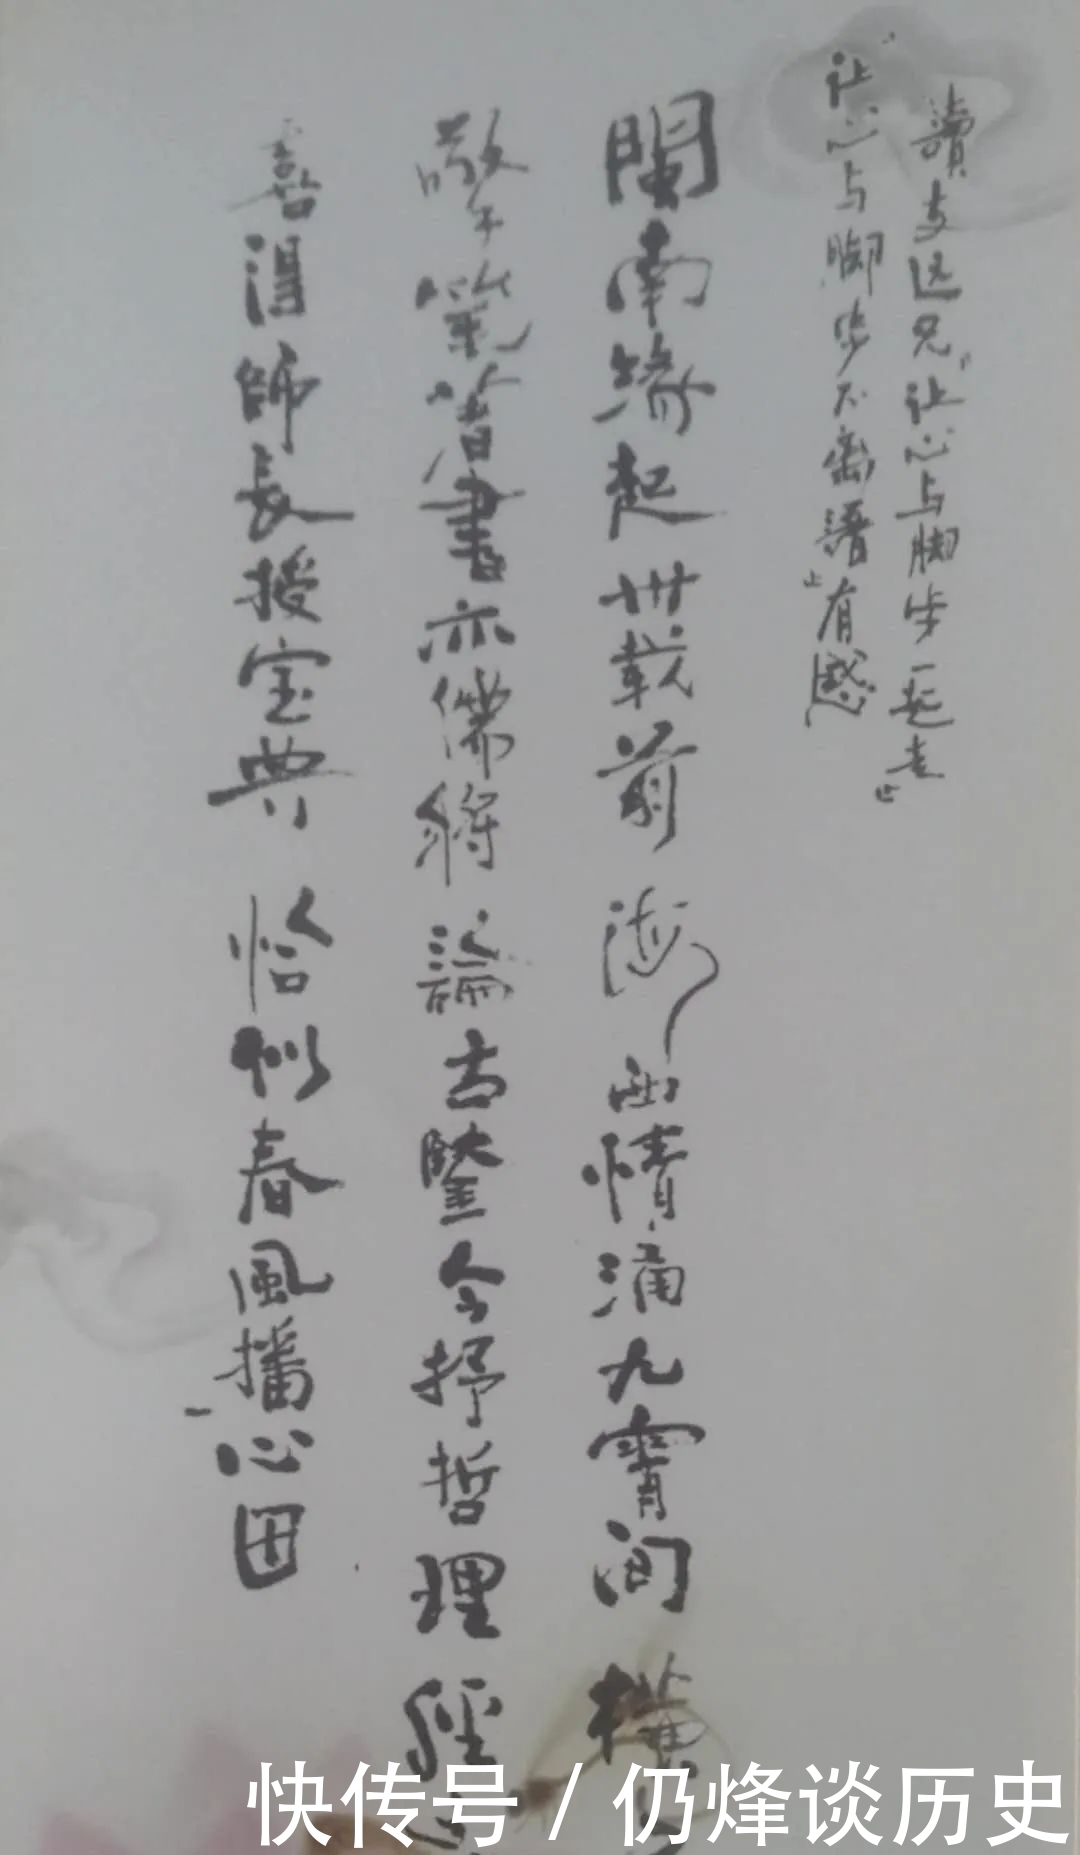 讀远兄"让心与脚步一起走"
"让心与脚步不离"有感
閩南緣起卅載前 海西情涌九霄间 横
擎筆著書亦儒將 論古鑒今抒哲理 經
喜得師長授宝典 恰似春風播心田
快传号 / 仍烽谈历史